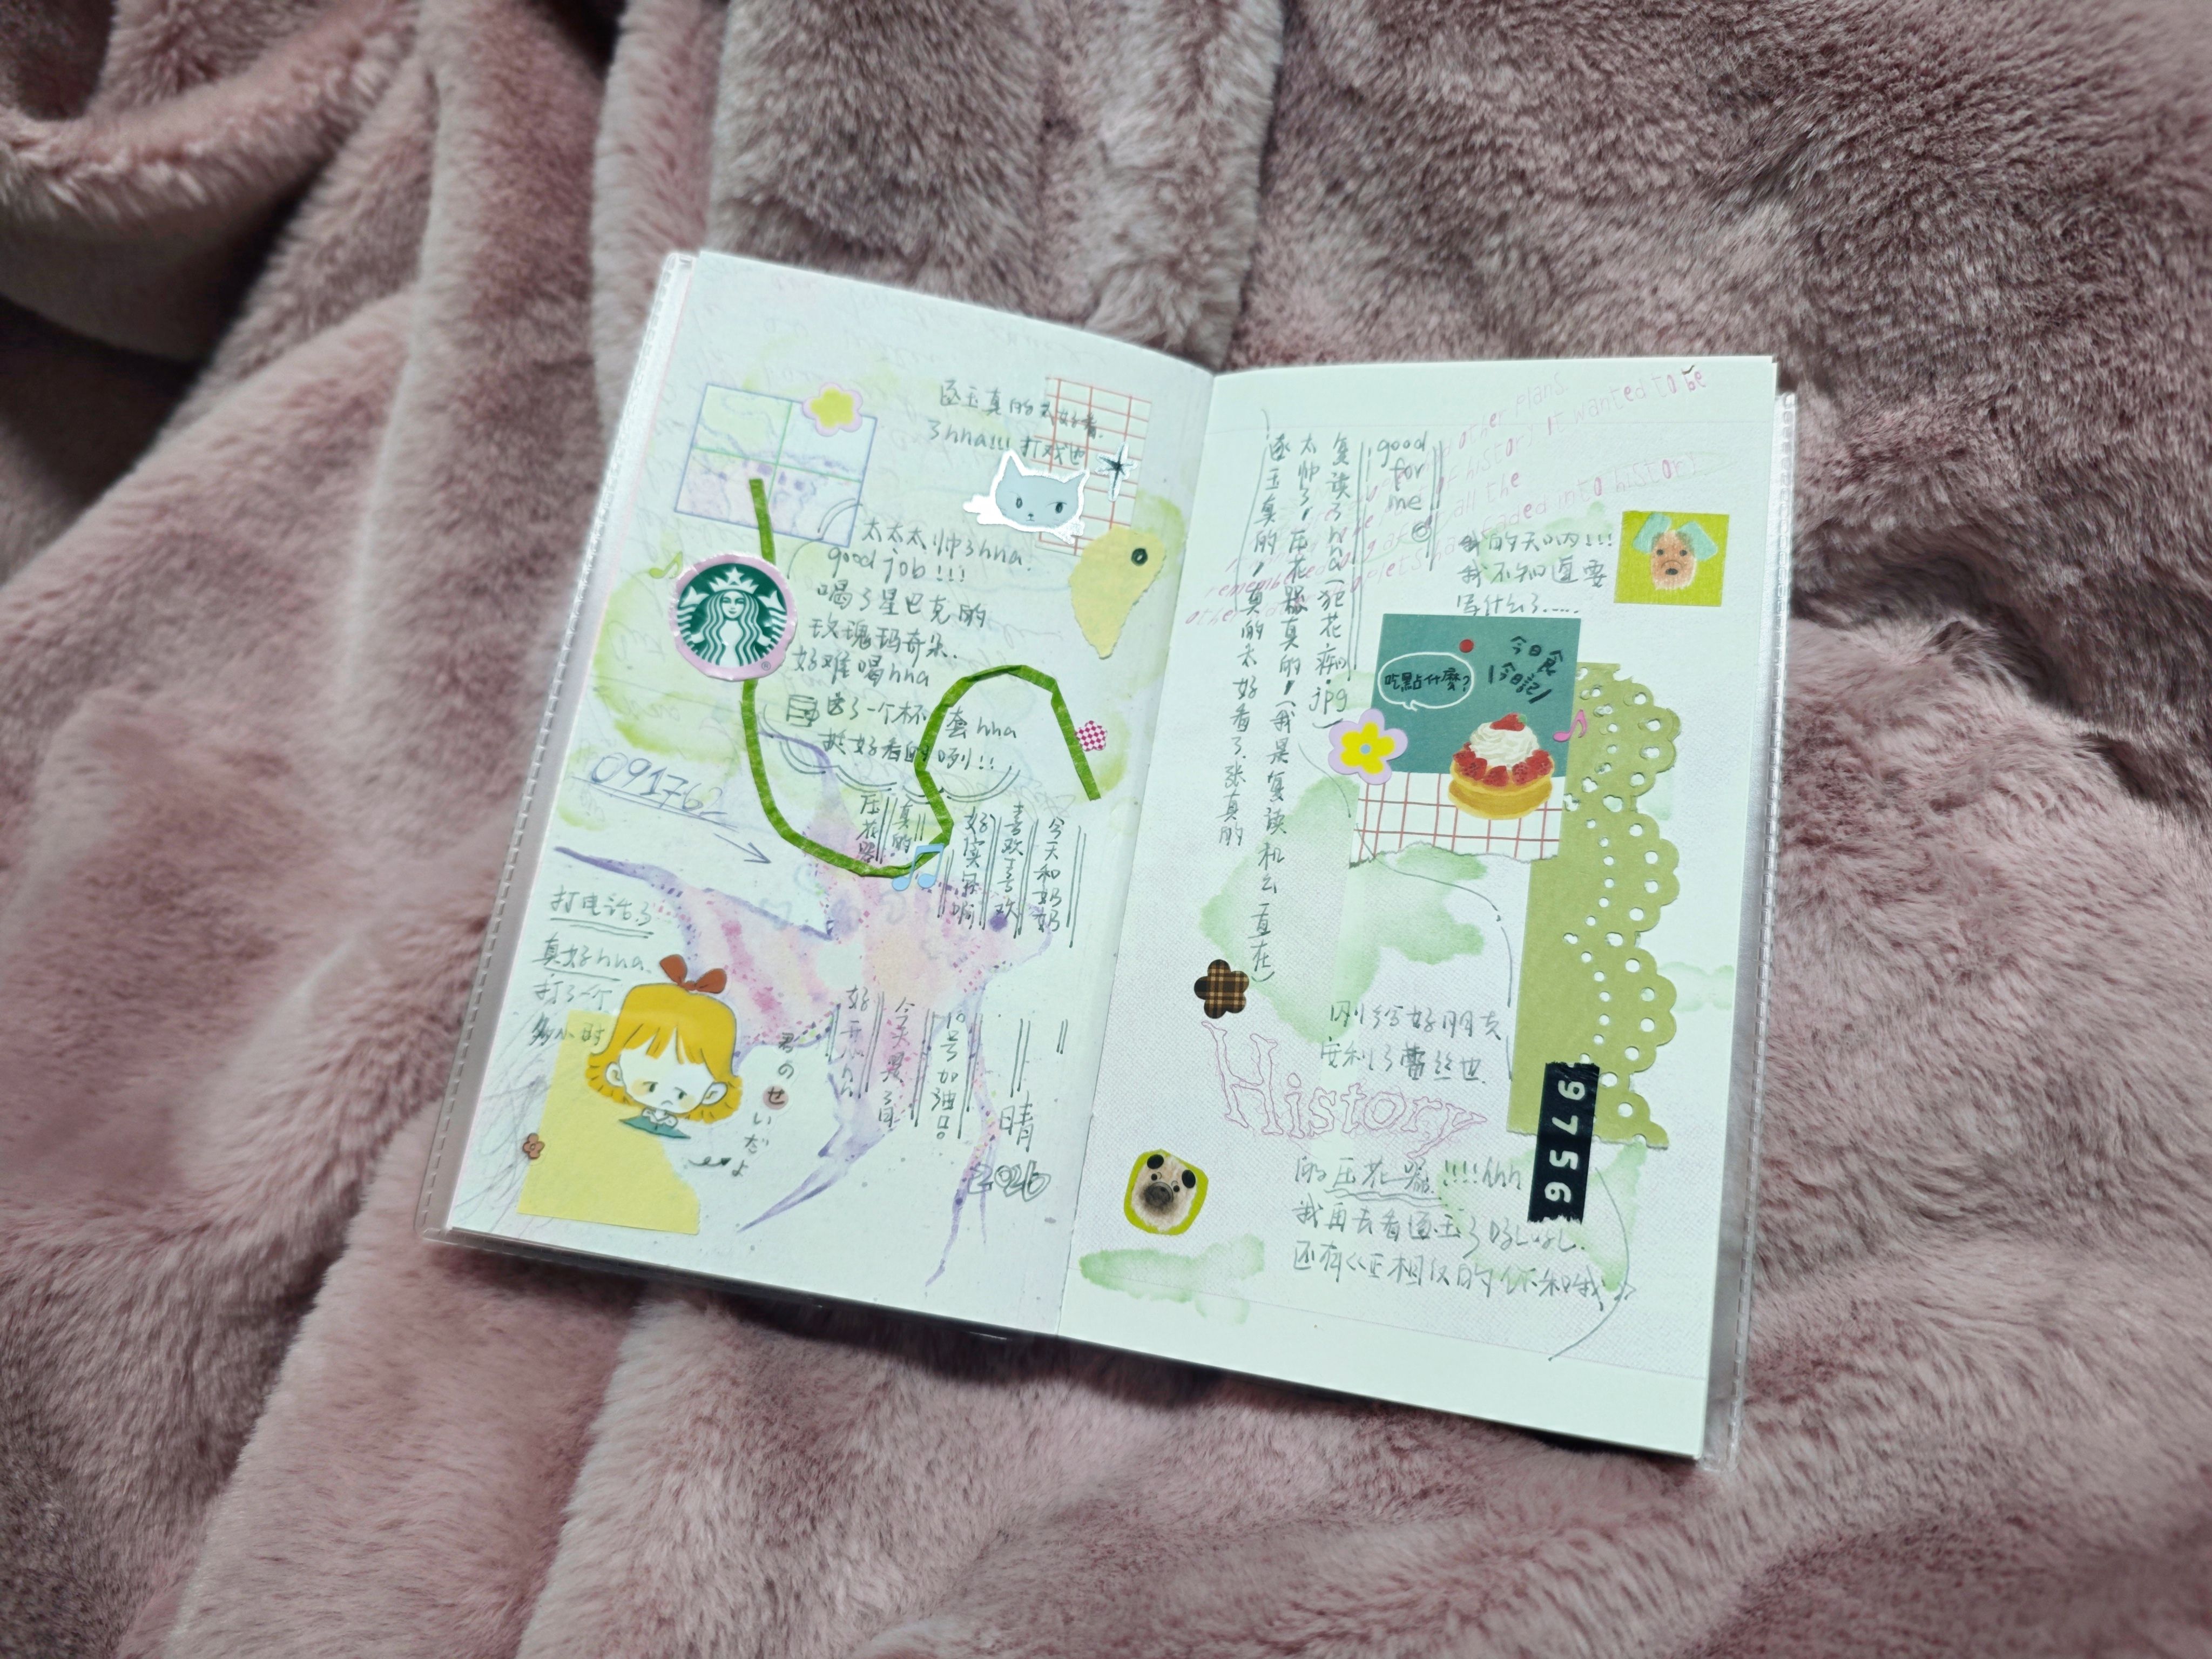 逐玉真的太好看
了hha!!! 打戏也
太太太帅了hha.
good job!!!
喝了星巴克的
玫瑰玛奇朵.
好难喝hha
送了一个杯套hha
挺好看的咧!!
091762
今天和奶奶
喜欢喜欢
好实冢啊
真的
压花器
打电话了
真好hha.
打了一个
多小时
君のせいだよ
晴
2026
10号加油日。
今天是
好开心
good
for
me
复读了hha(犯花痴.jpg)
太帅了,压花器真的,(我是复读机么一直在)
逐玉真的,真的太好看了.张真的
other plans.
history it wanted to be
all the
loaded into history
remembered
我的天呐!!!
我不知道要
写什么了......
今日食
今日記
吃點什麼?
刚给好朋友
安利了蕾丝也
History
9756
的压花器!!!!hhh
我再去看逐玉了